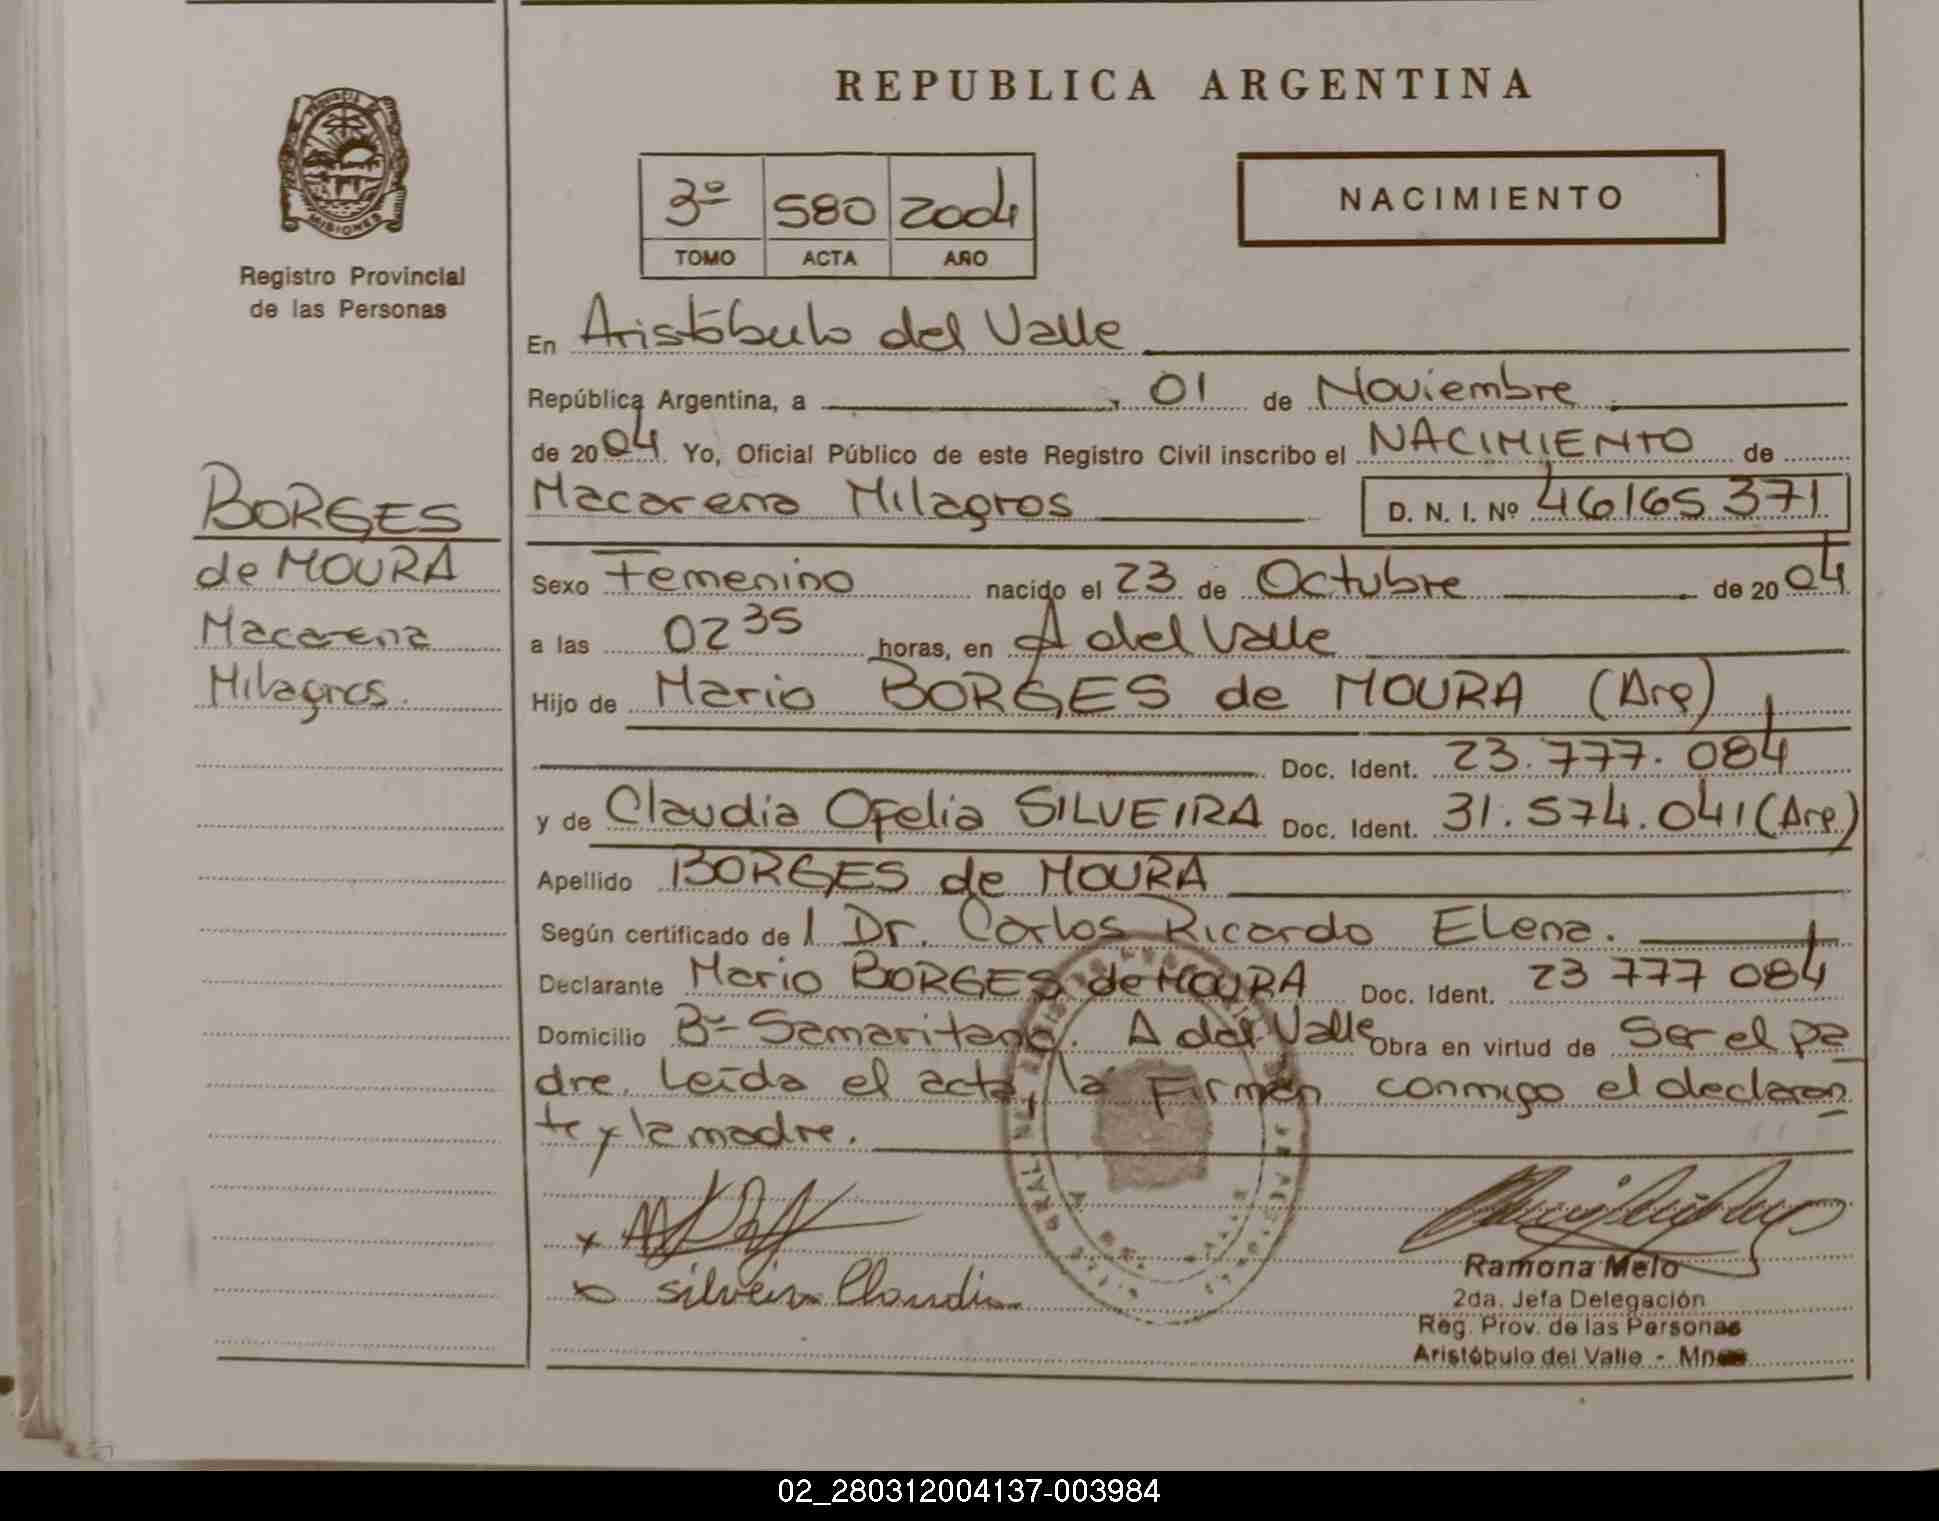 REPUBLICA ARGENTINA
PROVINCIA DE
MISIONES
Registro Provincial
de las Personas
3º 580 2004
TOMO ACTA AÑO
NACIMIENTO
BORGES
de MOURA
Macarena
Milagros.
En Aristóbulo del Valle
República Argentina, a , 01 de Noviembre
de 2004 Yo, Oficial Público de este Registro Civil inscribo el NACIMIENTO de
Macarena Milagros D. N. I. Nº 46165371
Sexo Femenino nacido el 23 de Octubre de 2004
a las 02 35 horas, en A del Valle
Hijo de Mario BORGES de MOURA (Arg)
Doc. Ident. 23.777.084
y de Claudia Ofelia SILVEIRA Doc. Ident. 31.574.041 (Arg)
Apellido BORGES de MOURA
Según certificado de l Dr. Carlos Ricardo Elena.
Declarante Mario BORGES de MOURA Doc. Ident. 23 777 084
Domicilio Bº Samaritano. A del Valle Obra en virtud de Ser el pa
dre. Leída el acta, la firman conmigo el declaran
te y la madre.
x
x Silveira Claudia
Ramona Melo
2da. Jefa Delegación
Reg. Prov. de las Personas
Aristóbulo del Valle - Mnes
02_280312004137-003984